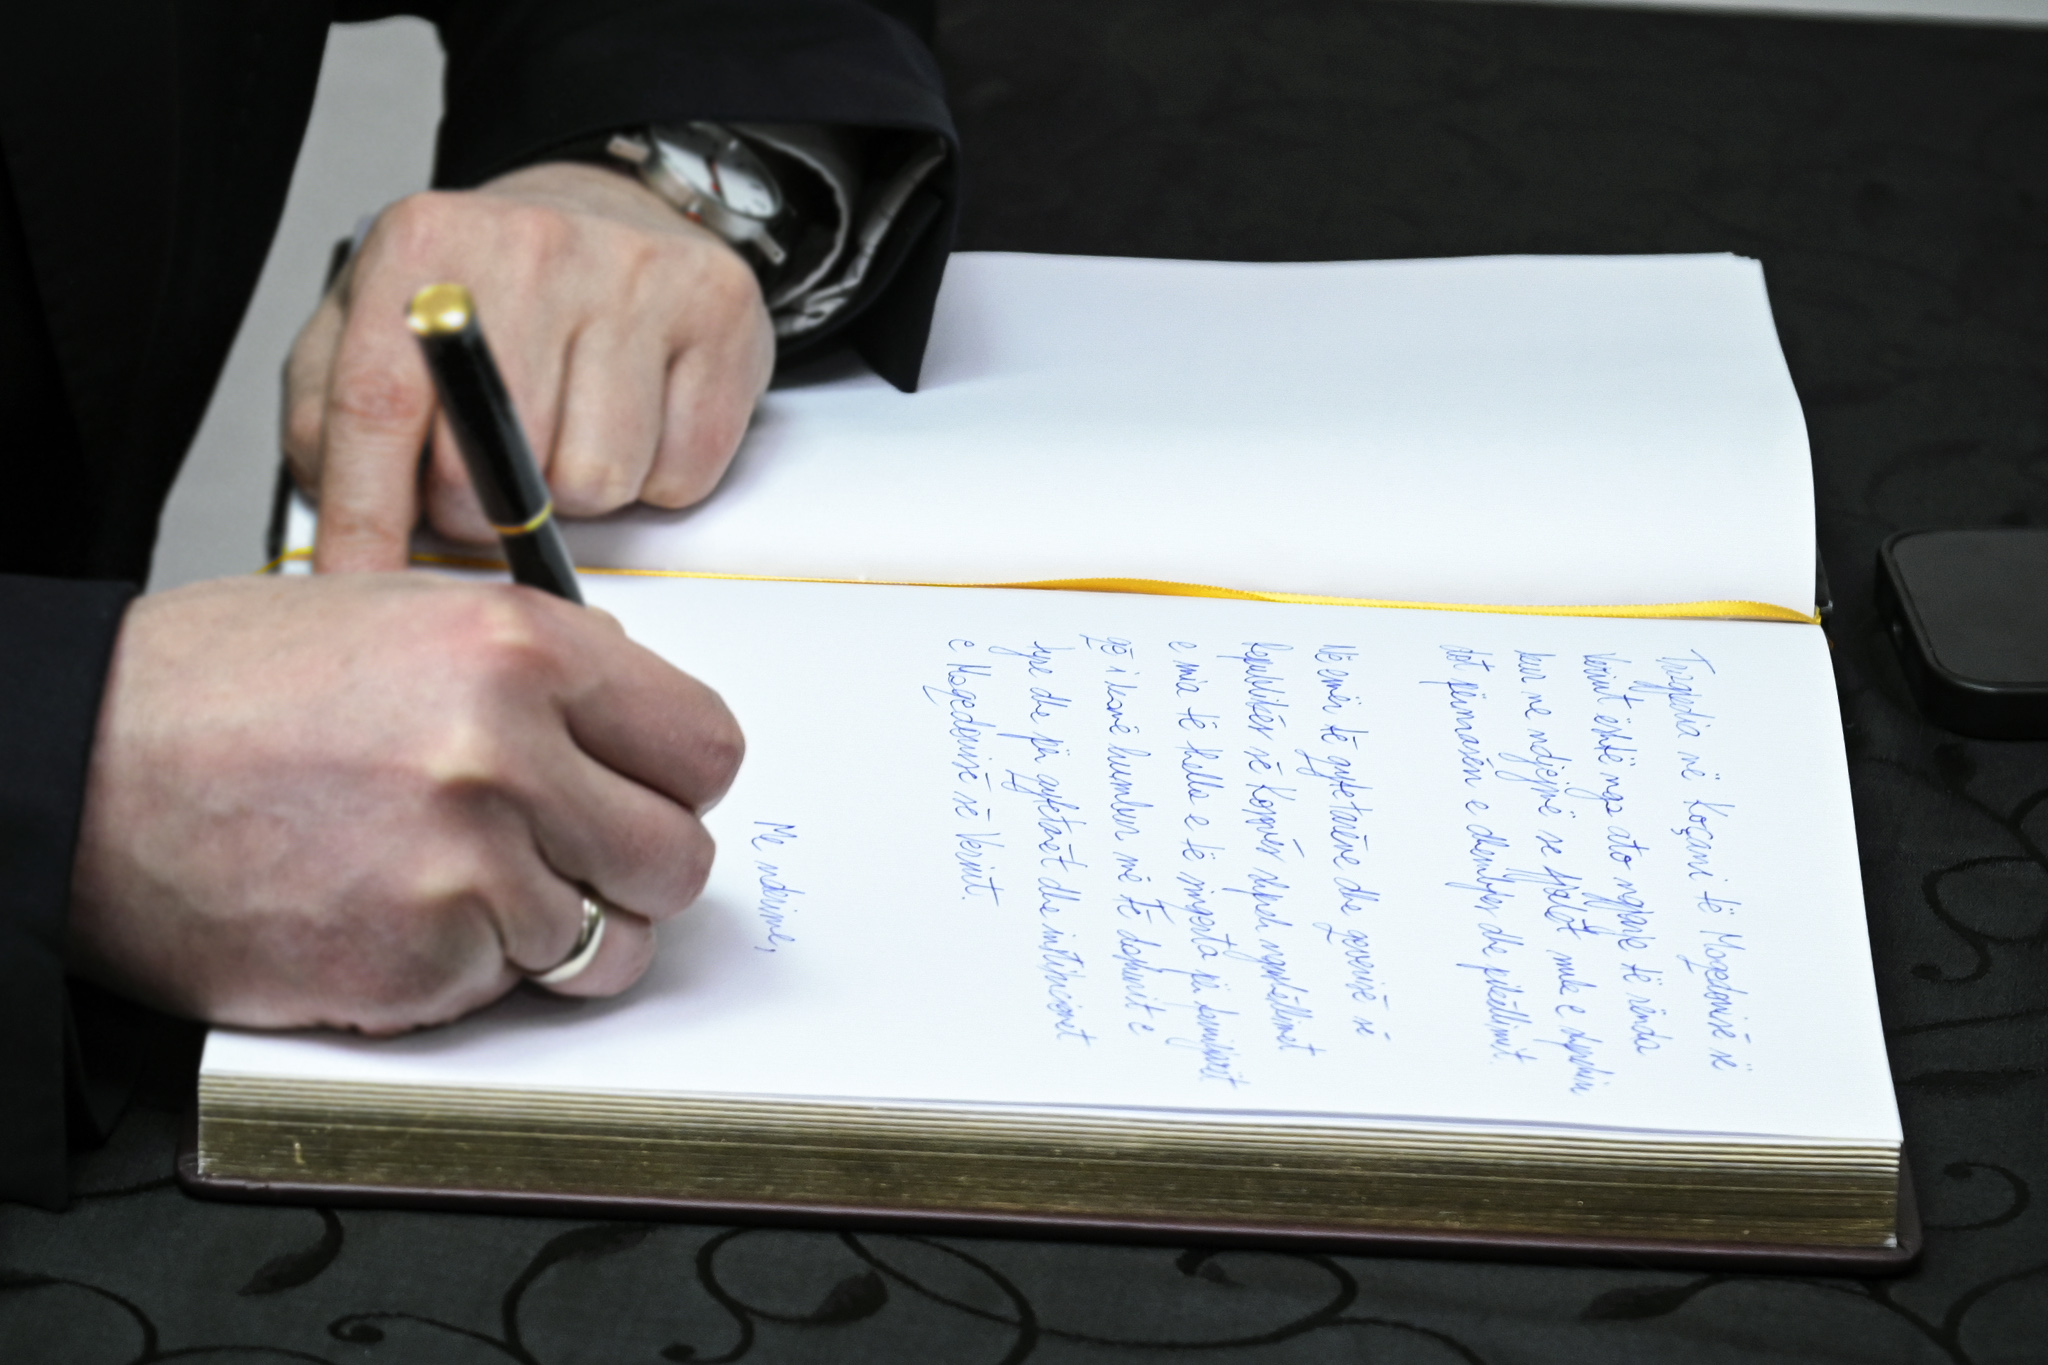 Tragjedia në Koçani të Maqedonisë së
Veriut është nga ato ngjarje të rënda
kur ne ndjejmë se fjalët nuk e shprehin
dot përmasën e dhimbjes dhe pikëllimit.
Në emër të qytetarëve dhe qeverisë së
Republikës së Kosovës shpreh ngushëllimet
e mia të thella e të sinqerta për familjarët
që i kanë humbur më të dashurit e
tyre dhe për qytetarët dhe institucionet
e Maqedonisë së Veriut.
Me nderime,